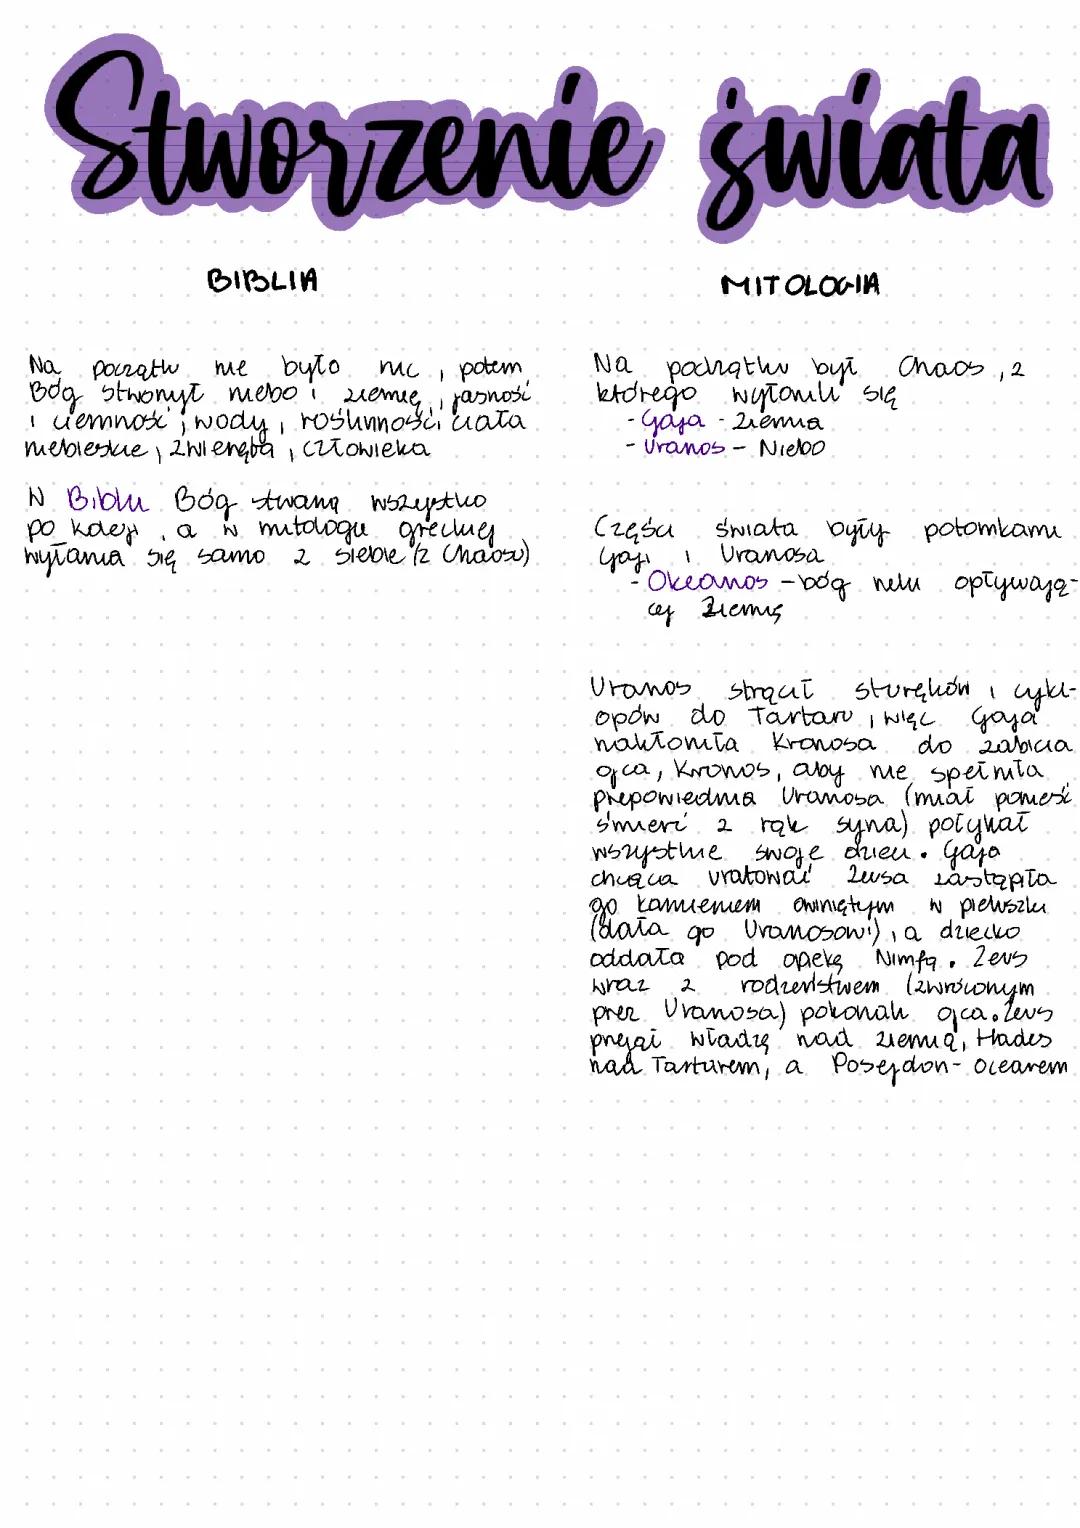 Stworzenie świata
BIBLIA
Na początku nie było nic, potem
Bóg stworzył niebo i ziemię, jasność
i ciemność, wody, roślinność, ciała
niebieskie, zwierzęta, człowieka
W Biblii Bóg stwarza wszystko
po kolei, a w mitologii greckiej
wyłania się samo z siebie (z Chaosu)
MITOLOGIA
Na początku był Chaos, z
którego wyłonili się
- Gaja - Ziemia
- Uranos - Niebo
Części świata były potomkami
Gai i Uranosa
- Okeanos - bóg rzeki opływają-
cej Ziemię
Uranos strącił sturękich i cykl-
opów do Tartaru, więc Gaja
nakłoniła Kronosa do zabicia
ojca, Kronos, aby nie spełniła
przepowiednia Uranosa (miał ponieść
śmierć z rąk syna) połykał
wszystkie swoje dzieci. Gaja
chcąca uratować Zeusa zastąpiła
go kamieniem owiniętym w pieluszki
(dała go Uranosowi), a dziecko
oddała pod opiekę Nimfą. Zeus
wraz z rodzeństwem (zwróconym
przez Uranosa) pokonali ojca. Zeus
przejął władzę nad ziemią, Hades
nad Tarturem, a Posejdon - Oceanem